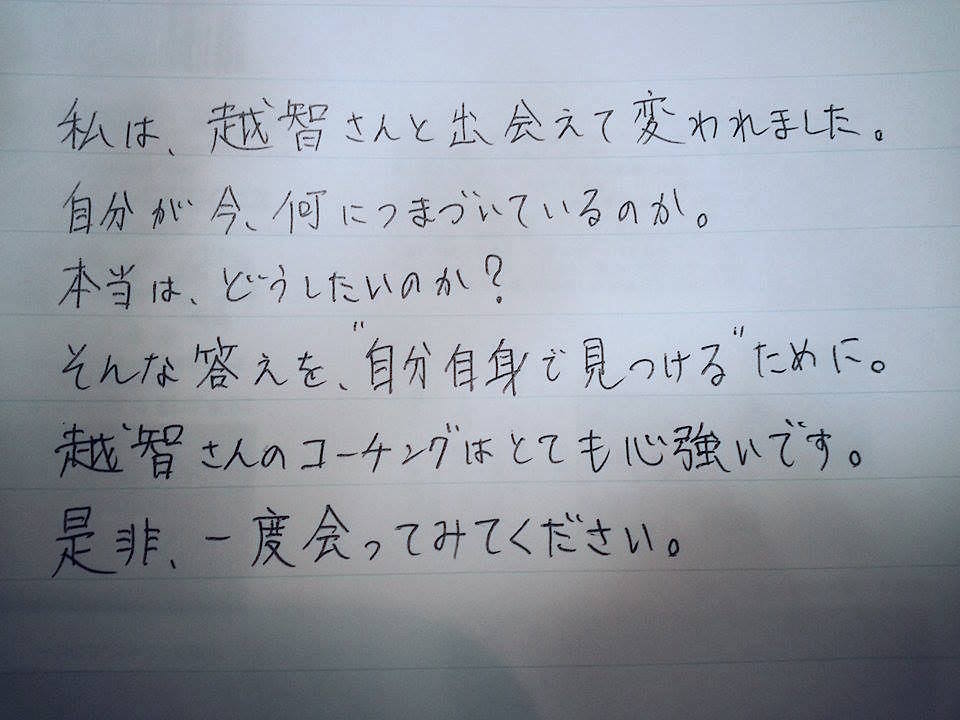 私は、越智さんと出会えて変われました。
自分が今、何につまづいているのか。
本当は、どうしたいのか?
そんな答えを、"自分自身で見つける"ために。
越智さんのコーチングはとても心強いです。
是非、一度会ってみてください。